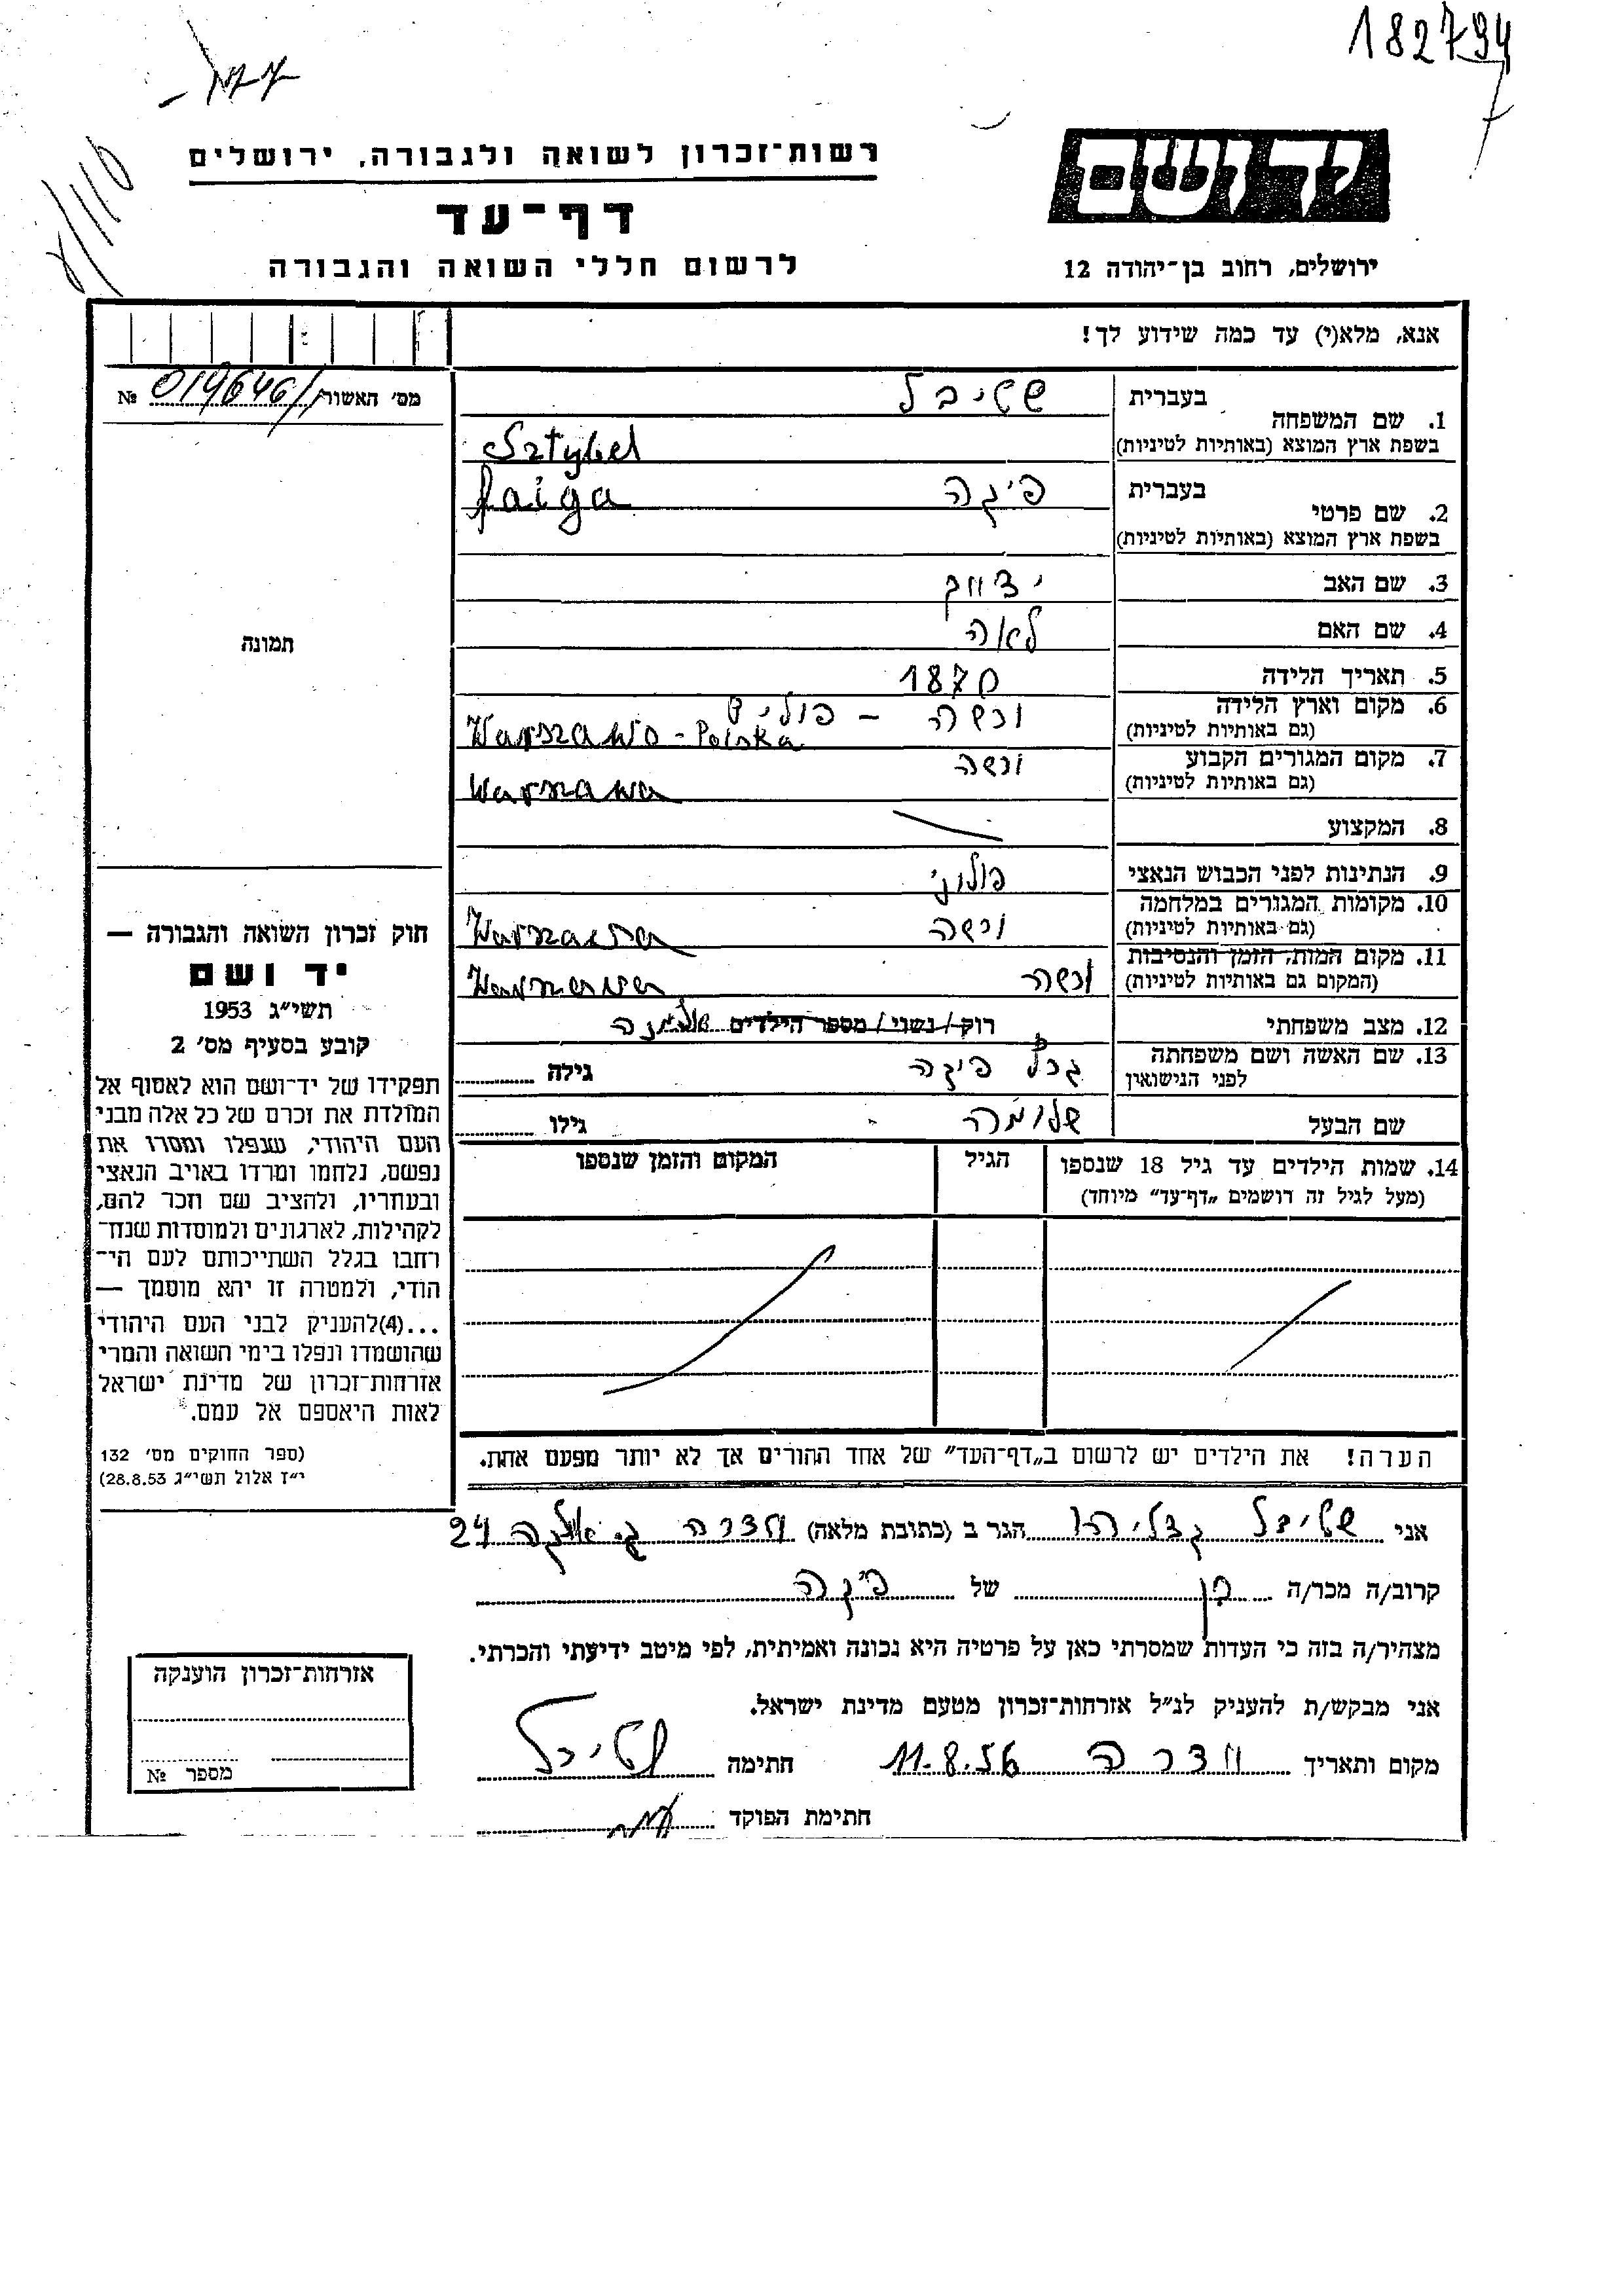 182794
7
רשות־זכרון לשואה ולגבורה, ירושלים
יד ושם
דף־עד
לרשום חללי השואה והגבורה
ירושלים, רחוב בן־יהודה 12
אנא, מלא(י) עד כמה שידוע לך!
מס׳ האשור 019646 №
1. שם המשפחה
בעברית שטיבל
בשפת ארץ המוצא (באותיות לטיניות) Sztybel
2. שם פרטי
בעברית פיגה faiga
בשפת ארץ המוצא (באותיות לטיניות)
3. שם האב יצחק
4. שם האם לאה
תמונה
5. תאריך הלידה 1870
6. מקום וארץ הלידה ורשה - פולין
(גם באותיות לטיניות) Warszawa - Polska
7. מקום המגורים הקבוע ורשה
(גם באותיות לטיניות) Warszawa
8. המקצוע
9. הנתינות לפני הכבוש הנאצי פולוני
10. מקומות המגורים במלחמה
(גם באותיות לטיניות) ורשה Warszawa
11. מקום המות, הזמן והנסיבות
(המקום גם באותיות לטיניות) ורשה Warszawa
12. מצב משפחתי רוק / נשוי / מספר הילדים אלמנה
13. שם האשה ושם משפחתה
לפני הנישואין פיגה גילה
שם הבעל שלומה גילו
14. שמות הילדים עד גיל 18 שנספו הגיל המקום והזמן שנספו
(מעל לגיל זה רושמים „דף־עד" מיוחד)
הערה! את הילדים יש לרשום ב„דף־העד" של אחד ההורים אך לא יותר מפעם אחת.
חוק זכרון השואה והגבורה —
יד ושם
תשי״ג 1953
קובע בסעיף מס׳ 2
תפקידו של יד־ושם הוא לאסוף אל
המולדת את זכרם של כל אלה מבני
העם היהודי, שנפלו ומסרו את
נפשם, נלחמו ומרדו באויב הנאצי
ובעוזריו, ולהציב שם וזכר להם,
לקהילות, לארגונים ולמוסדות שנח־
רבו בגלל השתייכותם לעם הי־
הודי, ולמטרה זו יהא מוסמך —
...(4)להעניק לבני העם היהודי
שהושמדו ונפלו בימי השואה והמרי
אזרחות־זכרון של מדינת ישראל
לאות היאספם אל עמם.
(ספר החוקים מס׳ 132
י״ז אלול תשי״ג 28.8.53)
אני שטיבל גדליהו הגר ב (כתובת מלאה) חדרה 24
קרוב/ה מכר/ה בן של פיגה
מצהיר/ה בזה כי העדות שמסרתי כאן על פרטיה היא נכונה ואמיתית, לפי מיטב ידיעתי והכרתי.
אני מבקש/ת להעניק לנ״ל אזרחות־זכרון מטעם מדינת ישראל.
מקום ותאריך חדרה 11.8.56 חתימה שטיבל
חתימת הפוקד
אזרחות־זכרון הוענקה
מספר №